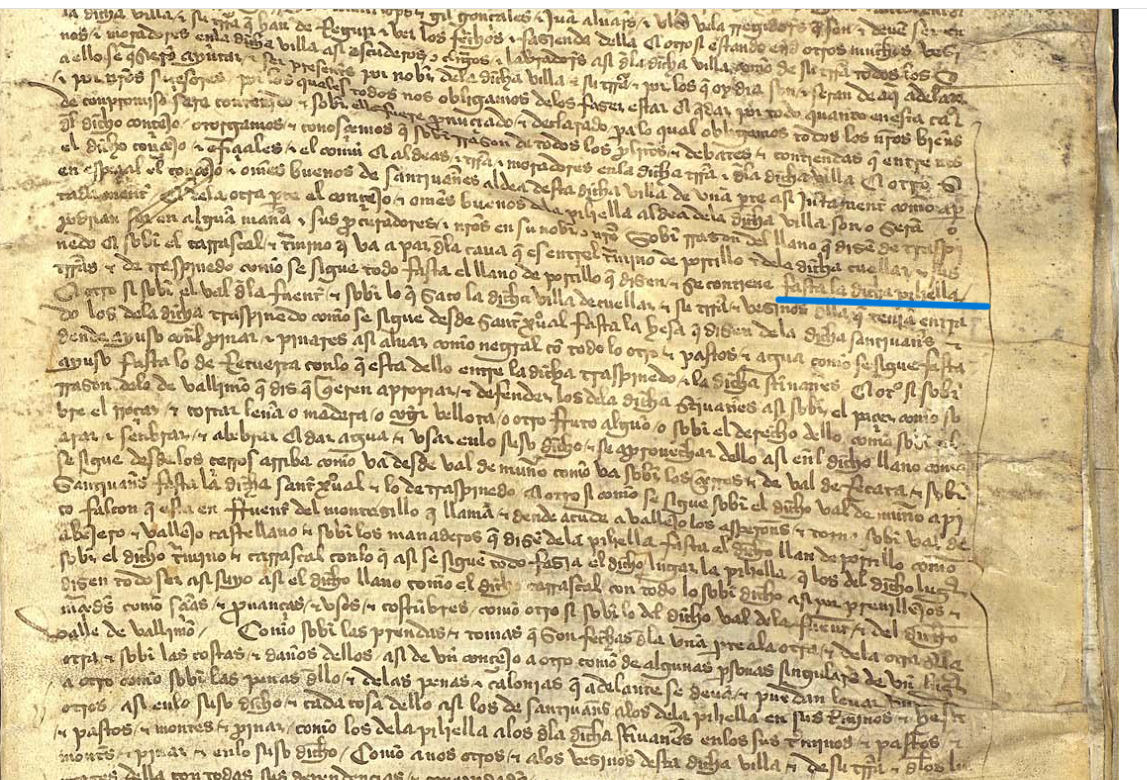 la dicha villa & su trra q han de Regir & ver los fechos & fasienda della Et otrosi estando otros muchos
nos & moradores enla dicha villa asi escuderos & labradores asi dla dicha villa como de su trra todos los
a ello ser presentes por nos dela dicha villa & su trra & por los q oy dia son & seran de aq adelante
& por nros subçesores por los quales todos nos obligamos delos faser estar & qdar por todo quanto enesta
de compromiso sera contenido & sobre ello fuere pnunciado & declarado pa lo qual obligamos todos los nros bienes
dl dicho conçejo otorgamos & conosçemos q sobre rrason de todos los plitos & debates & contiendas q entre nos
el dicho conçejo & ofiçiales & el comun & aldeas & trra & moradores enla dicha trra & dla dicha villa Et otro
en espeçial el conçejo & omes buenos de santivanes aldea desta dicha villa de una pte asi juntament como
Et dela otra pte el conçejo & omes buenos dela pihella aldea dela dicha villa son o seran o
podrian ser en alguna mana & sus procuradores & nros en su nobre Sobre rrason del llano q disen de traspi
nedo & sobre el carrascal & tmino q va a par dla cava q es entrel tmino de portillo & dela dicha cuellar & sus
trras & de traspinedo como se sigue todo fasta el llano de portillo q disen & se contiene fasta la dicha pihella
Et otro si sobre el val dla fuent & sobre lo q saco la dicha villa de cuellar & su trra & vesinos dlla q tenia entra
do los dela dicha traspinedo como se sigue desde sant xual fasta la hesa q disen dela dicha santivans &
dende ayuso conl pinar & pinares asi alvar como negral co todo lo otro & pastos & agua como se sigue fasta
ayuso fasta lo de Recuerra conlo q esta dello entre la dicha traspinedo & la dicha stivanes Et otº si sobre
rrason delo de vallimo q dis q qeren apropiar & defender los dela dicha stivanes asi sobre el paçer como so
bre el rroçar & cortar lena o madera o coger vellota o otro fruto alguo o sobre el derecho dello como sobre
arar & senbrar & alebrar & dar agua & usar enlo suso dicho & se aprovechar dello asi enl dicho llano como
se sigue desde los çerros arriba como va desde val de muno como va sobre los & de val de fecara & sobre
Santivans fasta la dicha sant xual & lo de traspinedo Et otro si como se sigue sobre el dicho val de muno a pi
co falcon q esta en ffruent del montesillo q llama & dende acude a vallejo los & sobre val de
abejero & vallejo castellano & sobre los manaderos q disen dela pihella fasta el dicho llan de portillo como
sobre el dicho tmino & carrascal conlo q asi se sigue todo fasta el dicho lugar la pihella q los del dicho lugar
disen todo ser asi suyo asi el dicho llano como el dicho carrascal con todo lo sobre dicho asi por previllejos &
mçeds como snas & pvanças & usos & costubres como otro si sobre lo del dicho val dela fuent & del dicho
valle de vallimo Como sobre las prendas & tomas q son fechas dla una pte ala otra & dela otra ala
otra & sobre las costas & danos dellos asi de un conçejo a otro como de algunas psonas singulares de un lugar
a otro como sobre las penas dllo & delas penas & calonias q adelante se deva & puedan levar
otros asi enlo suso dicho & cada cosa dello asi los de santivans alos dela pihella en sus tminos &
& pastos & montes & pinar como los dela pihella alos dla dicha stivanes enlos sus tminos & pastos &
montes & pinar & enlo suso dicho Como a nos otros & alos vesinos desta dicha villa & de su trra & dlos
della con todas sus dependençias &